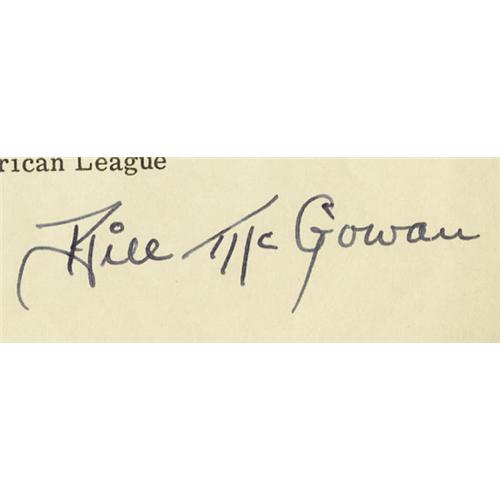 rican League
Bill McGowan